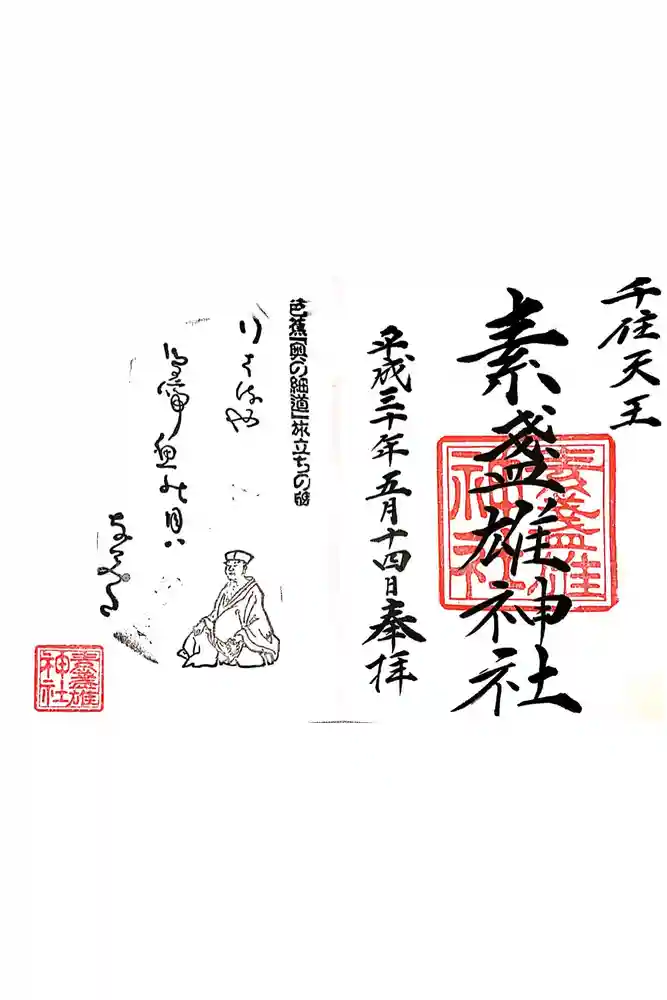 千住天王
素盞雄神社
平成三十年五月十四日奉拝
素盞雄
神社
芭蕉「奥の細道」旅立ちの碑
行はるや
鳥啼魚の目ハ
なみた
素盞雄
神社